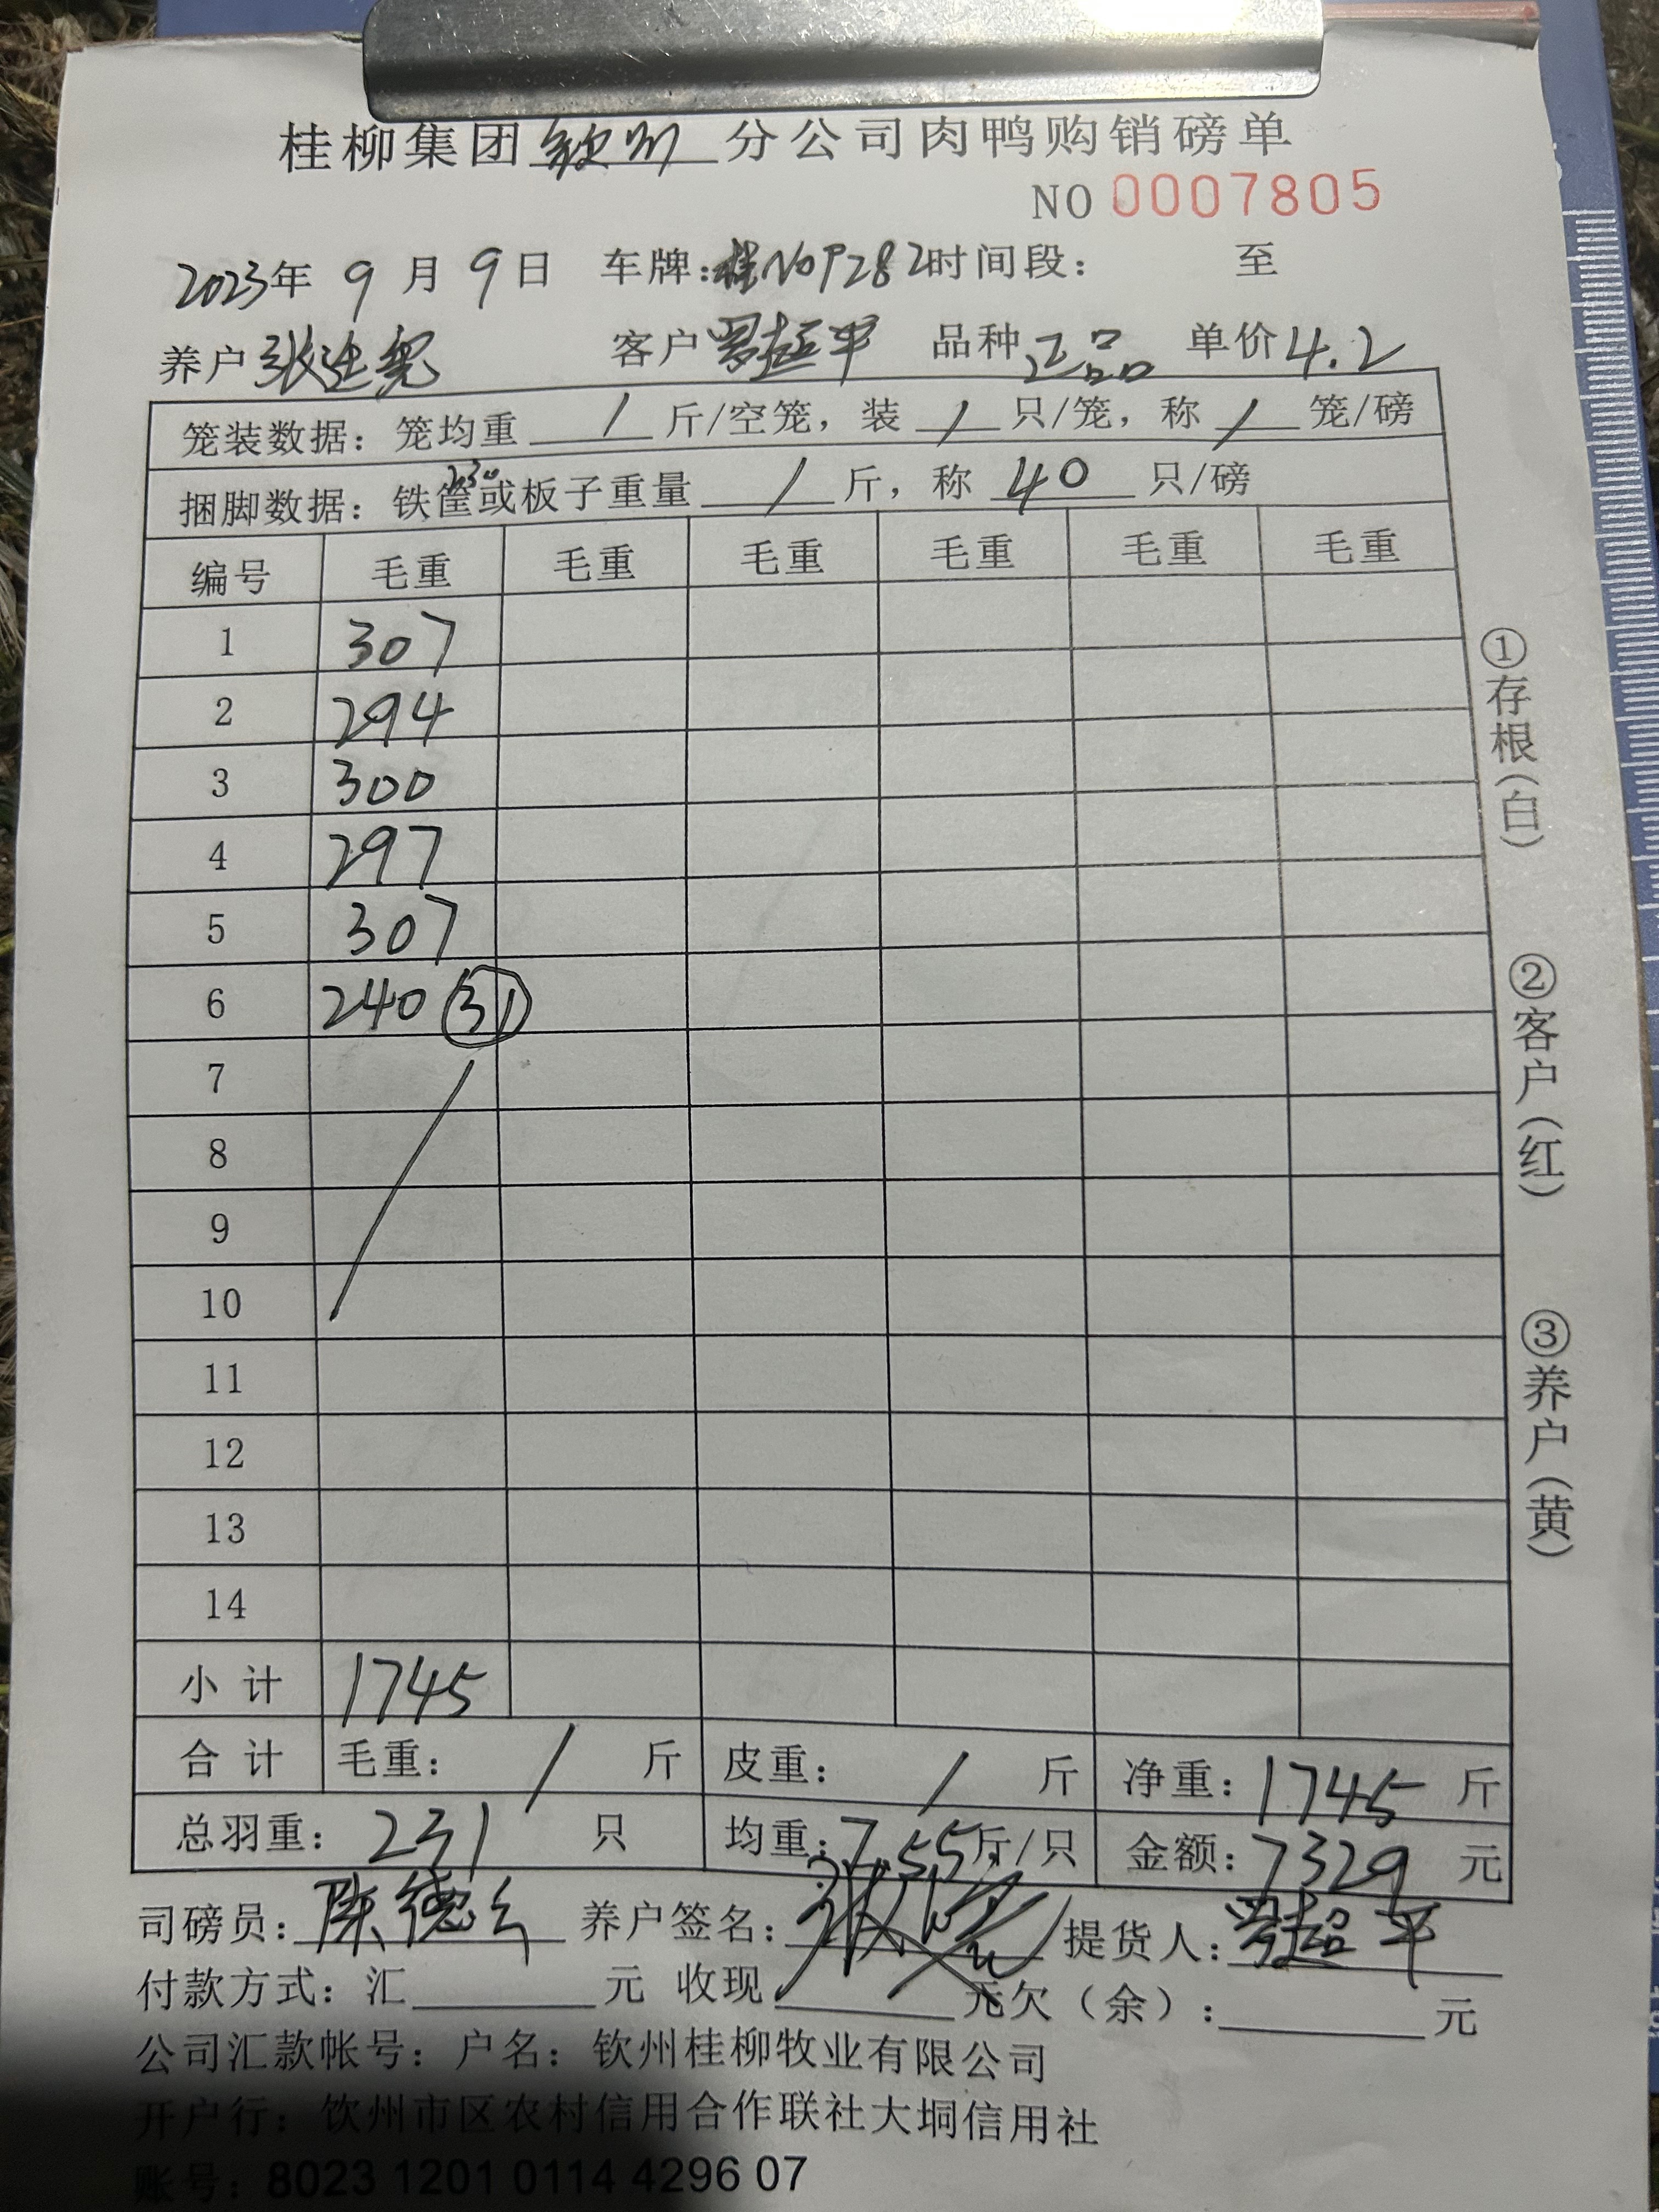 桂柳集团钦州分公司肉鸭购销磅单
NO 0007805
2023年 9 月 9 日 车牌:桂N0P282时间段: 至
养户 张 客户 罗超平 品种 正品 单价4.2
笼装数据: 笼均重 / 斤/空笼, 装 / 只/笼, 称 / 笼/磅
捆脚数据: 铁筐或板子重量 / 斤, 称 40 只/磅
编号 毛重 毛重 毛重 毛重 毛重 毛重
1 307
2 294
3 300
4 297
5 307
6 240 31
7
8
9
10
11
12
13
14
小 计 1745
合 计 毛重: / 斤 皮重: / 斤 净重: 1745 斤
总羽重: 231 只 均重: 7.55斤/只 金额: 7329 元
司磅员: 陈德 养户签名: 张 提货人: 罗超平
付款方式: 汇 元 收现 元欠(余): 元
公司汇款帐号: 户名: 钦州桂柳牧业有限公司
开户行: 饮州市区农村信用合作联社大垌信用社
账号: 8023 1201 0114 4296 07
①存根(白)
②客户(红)
③养户(黄)